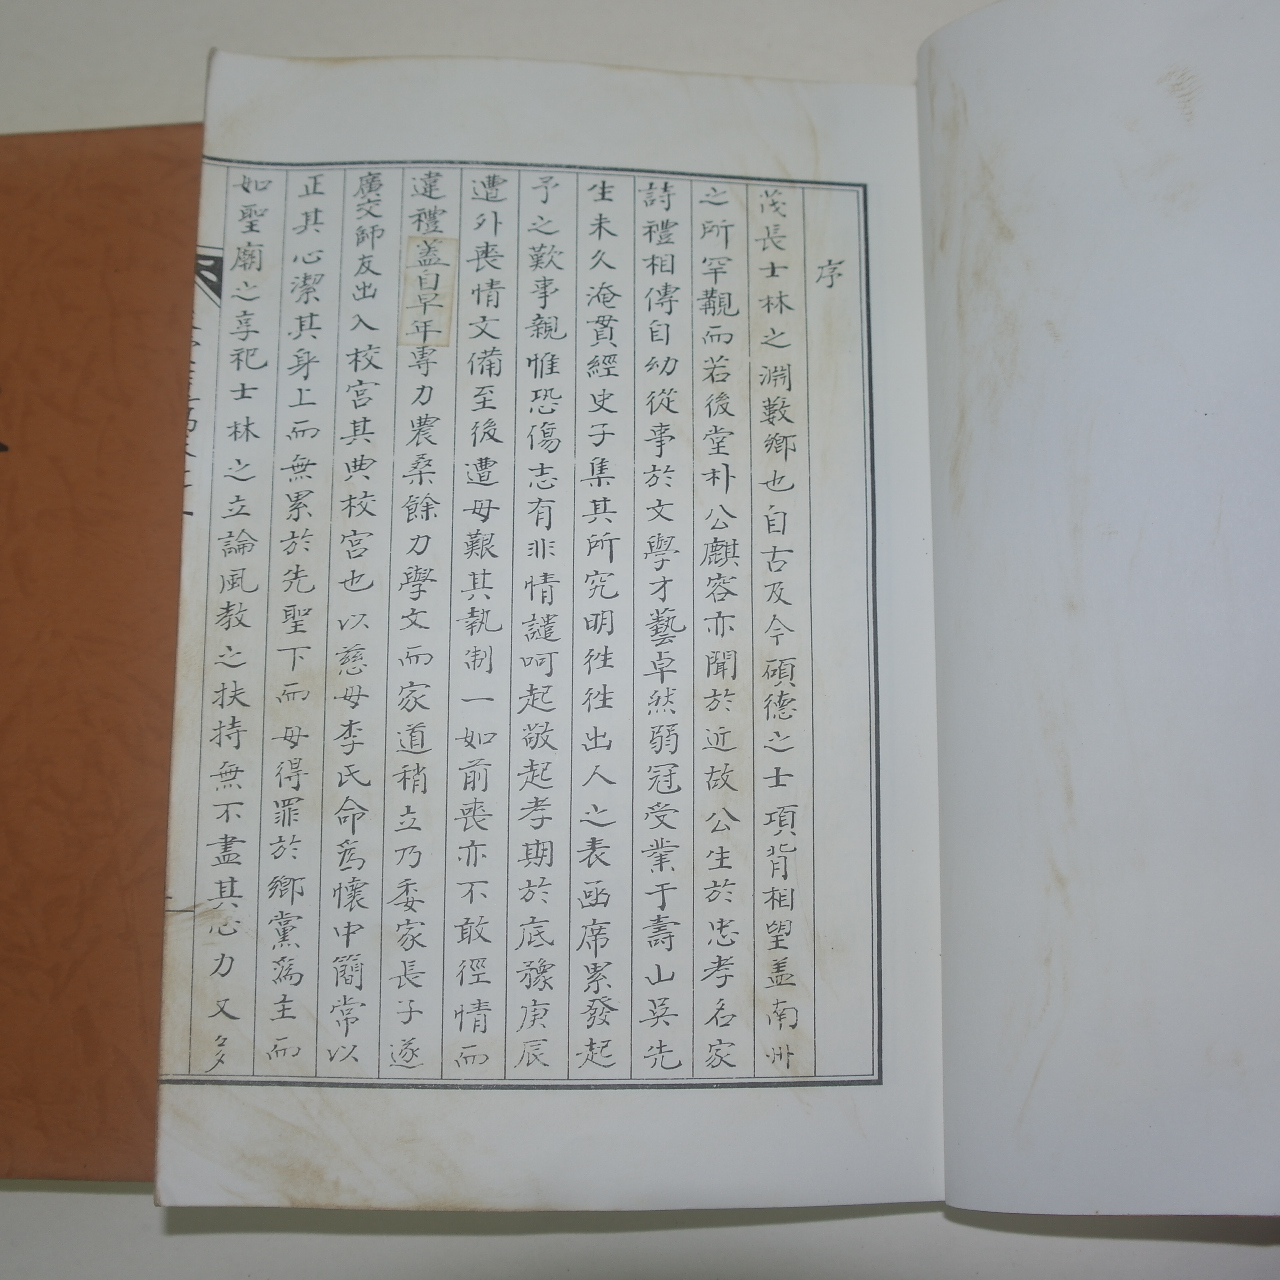 序
茂長士林之淵藪鄉也自古及今碩德之士項背相望盖南州
之所罕覯而若後堂朴公麒容亦聞於近故公生於忠孝名家
詩禮相傳自幼從事於文學才藝卓然弱冠受業于壽山吳先
生未久淹貫經史子集其所究明徃徃出人之表凾席累發起
予之歎事親惟恐傷志有非情譴呵起敬起孝期於底豫庚辰
遭外喪情文備至後遭母艱其執制一如前喪亦不敢徑情而
違禮盖自早年專力農桑餘力學文而家道稍立乃委家長子遂
廣交師友出入校宮其典校宮也以慈母李氏命爲懷中簡常以
正其心潔其身上而無累於先聖下而毋得罪於鄉黨爲主而
如聖廟之享祀士林之立論風教之扶持無不盡其心力又多